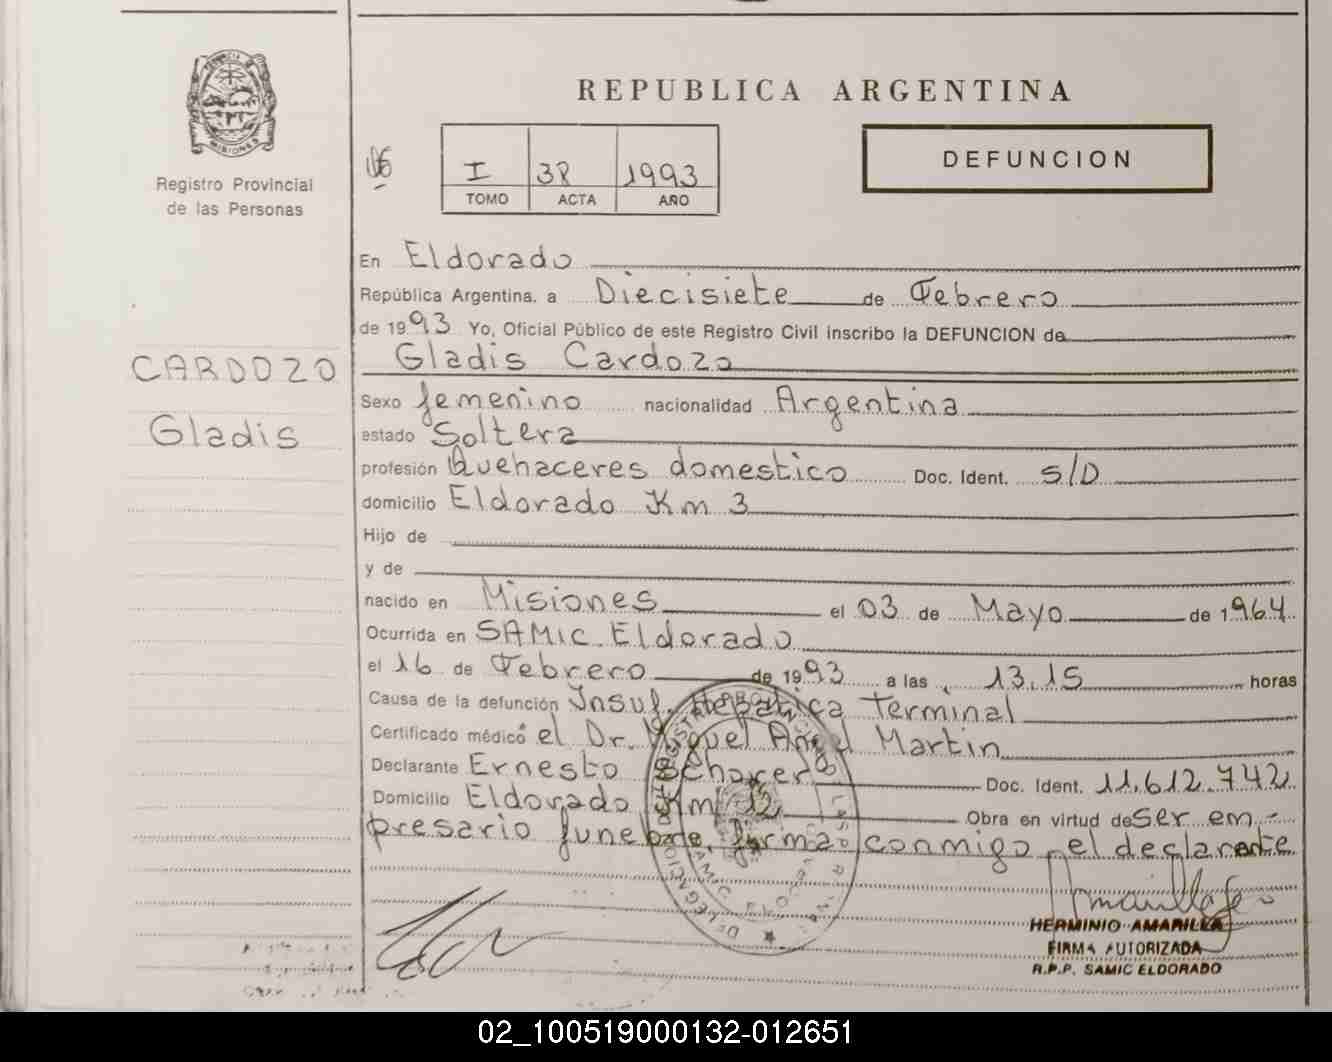 MISIONES
Registro Provincial
de las Personas
CARDOZO
Gladis
REPUBLICA ARGENTINA
I 38 1993
TOMO ACTA AÑO
DEFUNCION
En Eldorado
República Argentina, a Diecisiete de Febrero
de 1993 Yo, Oficial Público de este Registro Civil inscribo la DEFUNCION de
Gladis Cardozo
Sexo femenino nacionalidad Argentina
estado Soltera
profesión Quehaceres domestico Doc. Ident. S/D
domicilio Eldorado Km 3
Hijo de
y de
nacido en Misiones el 03 de Mayo de 1964
Ocurrida en SAMIC Eldorado
el 16 de Febrero de 1993 a las 13,15 horas
Causa de la defunción Insuf. Hepatica Terminal
Certificado médico el Dr. Miguel Angel Martin
Declarante Ernesto Doc. Ident. 11.612.742
Domicilio Eldorado Km 12 Obra en virtud de ser em-
presario funebre, firma conmigo el declarante
HERMINIO AMARILLA
FIRMA AUTORIZADA
R.P.P. SAMIC ELDORADO
02_100519000132-012651